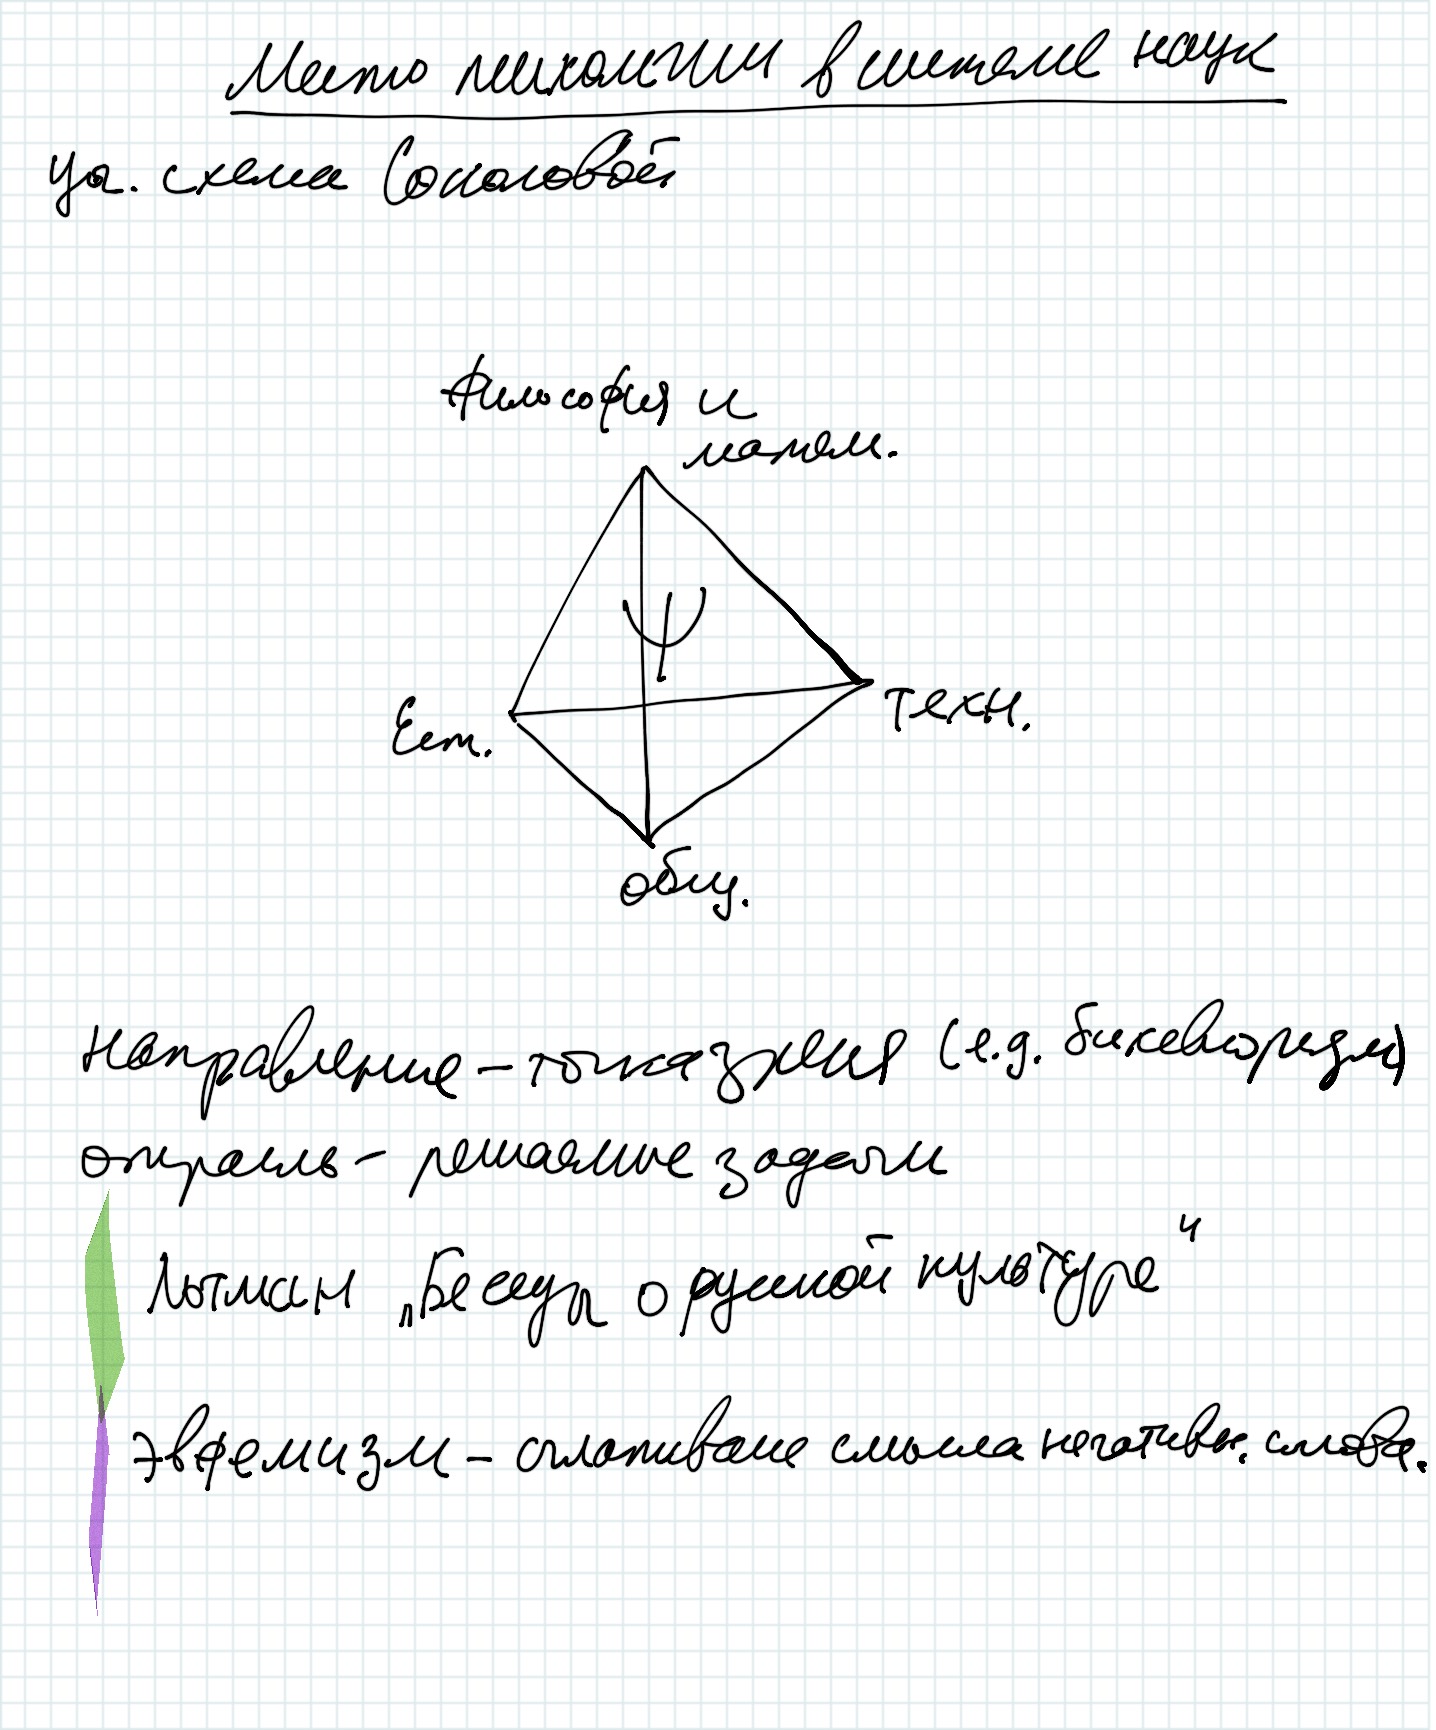 Место психологии в системе наук
уч. схема Соколовой
Философия и
матем.
Ψ
Ест.
техн.
общ.
направление – точка зрения (е.д. бихевиоризм)
отрасль – решаемые задачи
Лотман „Беседы о русской культуре“
эвфемизм – сглаживание смысла негативн. слова.